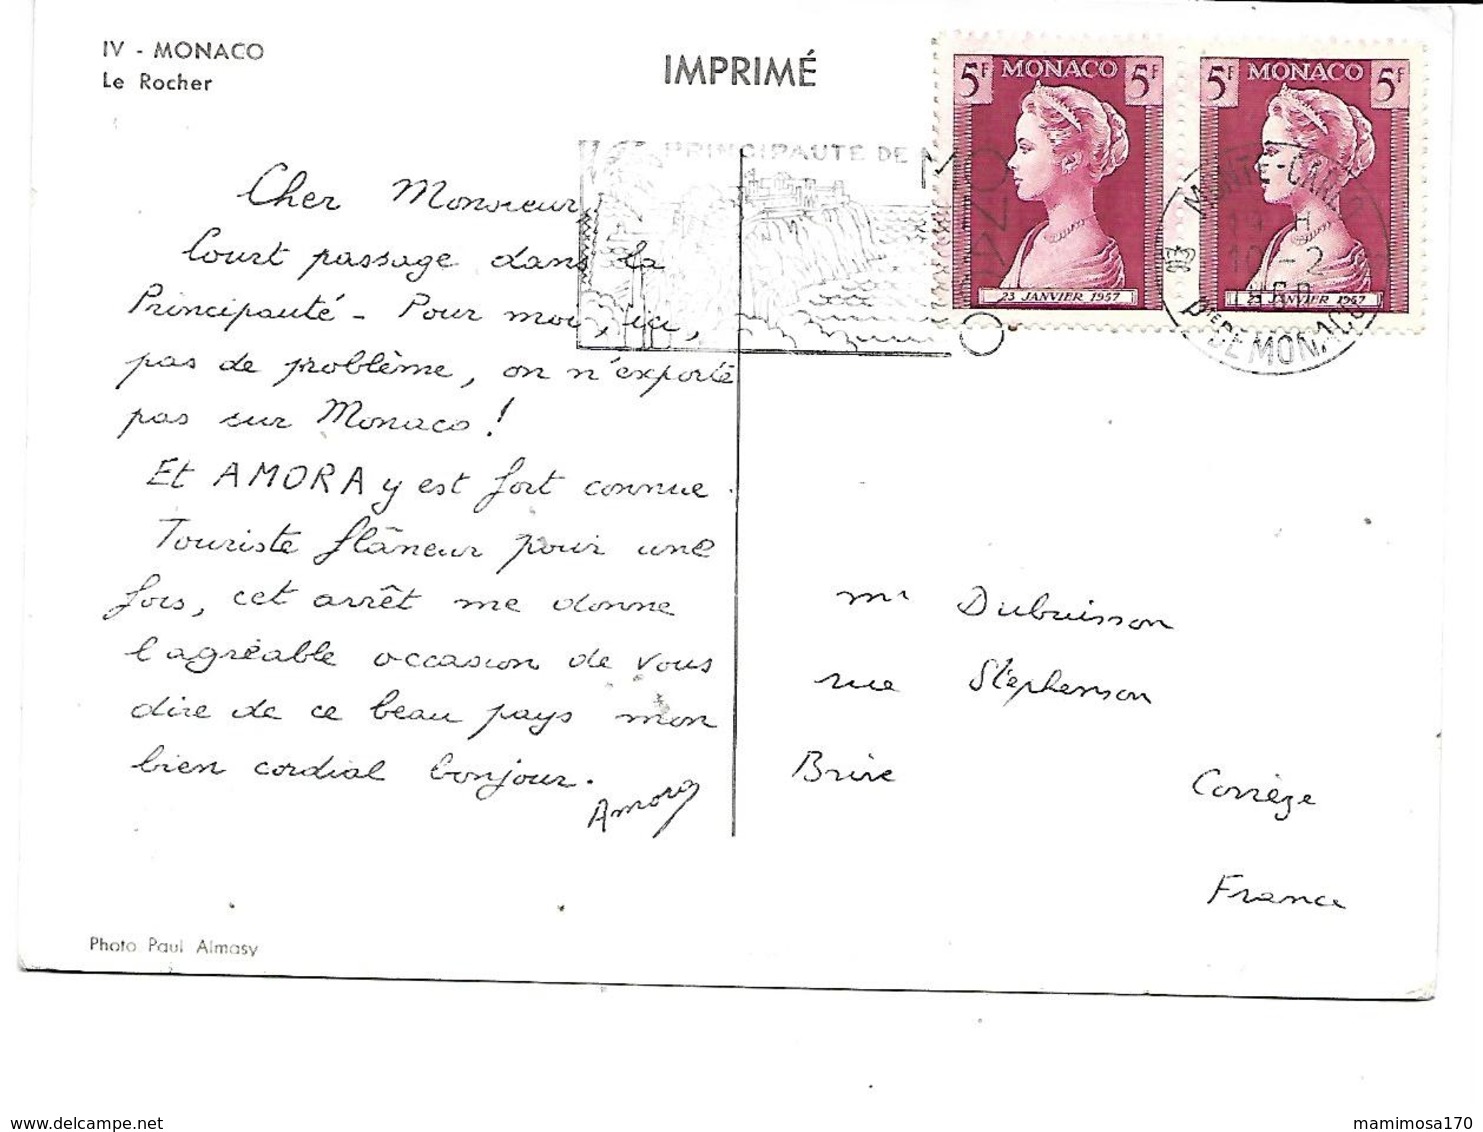 IV - MONACO
Le Rocher
IMPRIMÉ
5F MONACO 5F
23 JANVIER 1957
5F MONACO 5F
23 JANVIER 1957
PRINCIPAUTE DE MONACO
MONTE-CARLO
10-2
PTE DE MONACO
Cher Monsieur,
Court passage dans la
Principauté - Pour moi, ici,
pas de problème, on n'exporte
pas sur Monaco !
Et AMORA y est fort connue.
Touriste flâneur pour une
fois, cet arrêt me donne
l'agréable occasion de vous
dire de ce beau pays mon
bien cordial bonjour.
Amora
Mr Dubuisson
rue Stephenson
Brive
Corrèze
France
Photo Paul Almasy
www.delcampe.net
mamimosa170